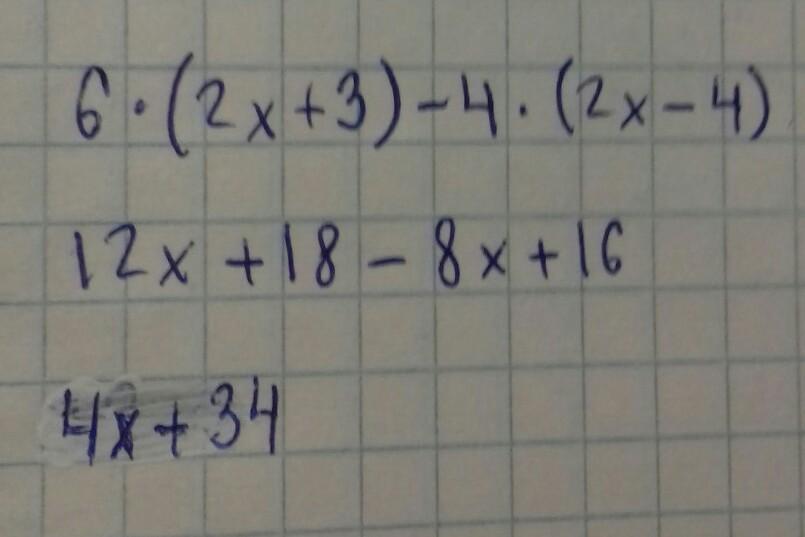 6 · (2x+3) - 4 · (2x - 4)
12x + 18 - 8x + 16
4x + 34